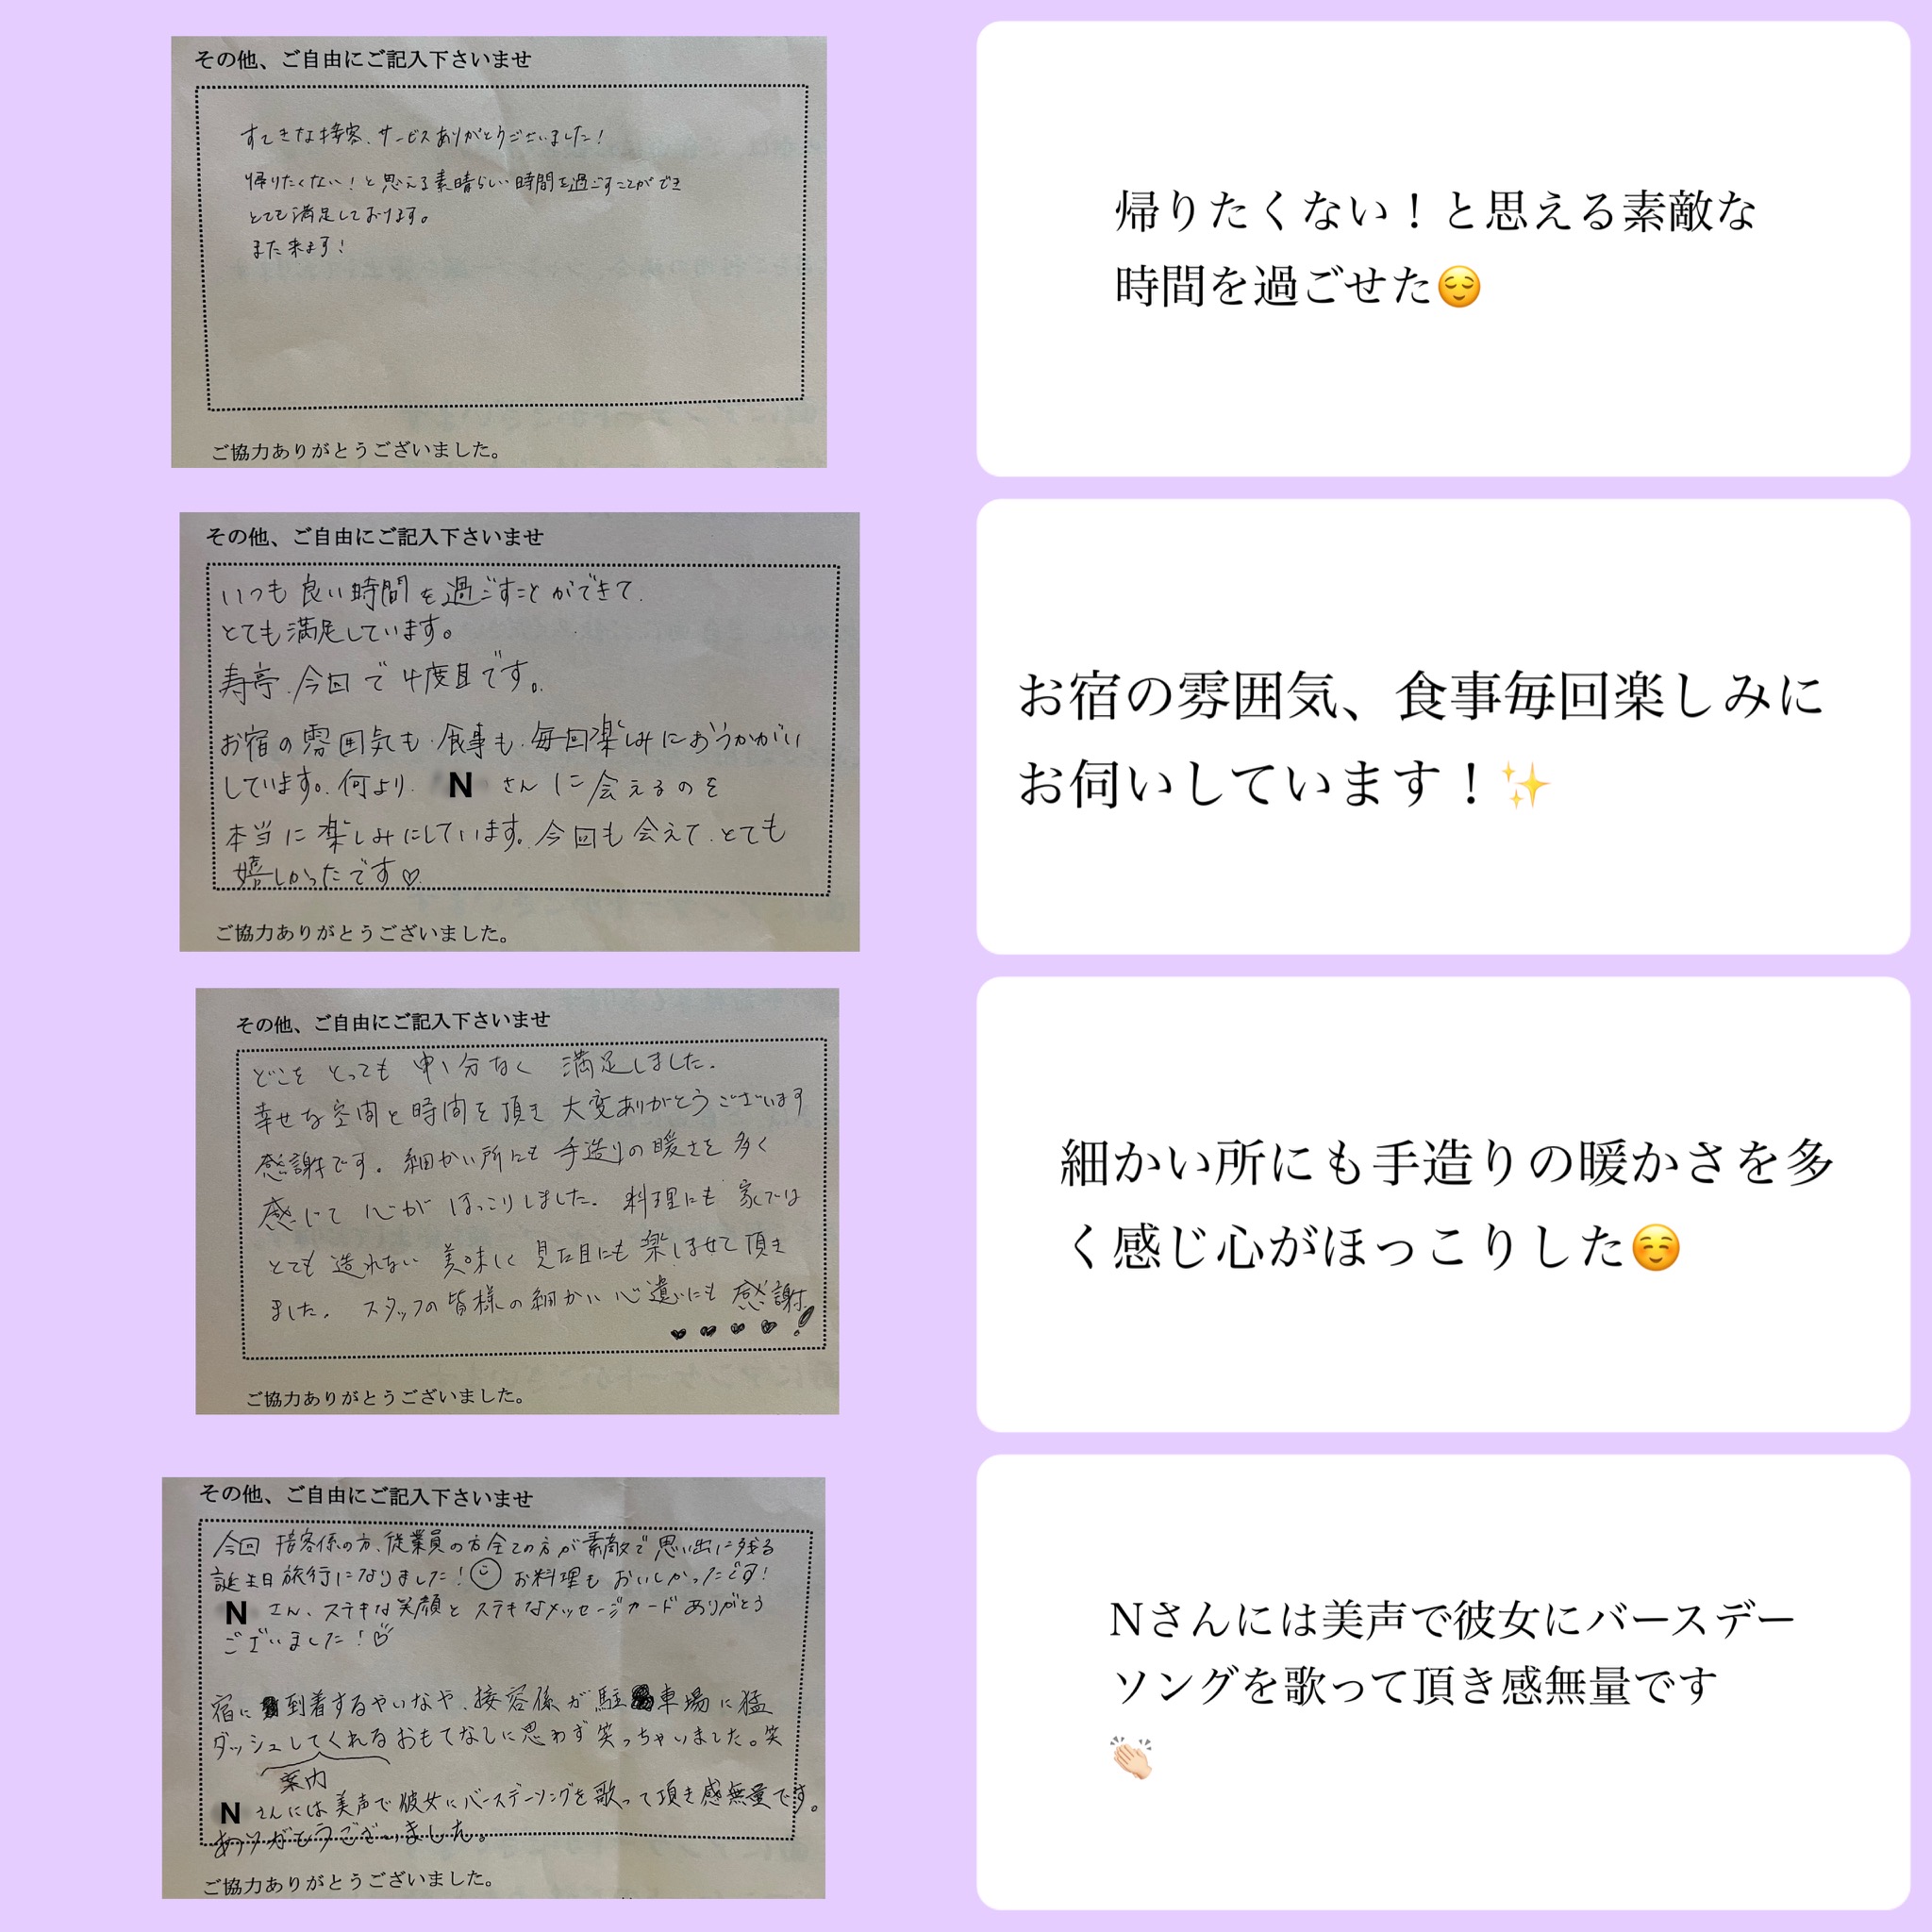 その他、ご自由にご記入下さいませ
すてきな接客、サービスありがとうございました!
帰りたくない!と思える素晴らしい時間を過ごすことができ
とても満足しております。
また来ます!
ご協力ありがとうございました。
帰りたくない!と思える素敵な
時間を過ごせた😌
その他、ご自由にご記入下さいませ
いつも良い時間を過ごすことができて、
とても満足しています。
寿亭、今回で4度目です。
お宿の雰囲気も、食事も、毎回楽しみにおうかがい
しています。何より、Nさんに会えるのを
本当に楽しみにしています。今回も会えて、とても
嬉しかったです♡
ご協力ありがとうございました。
お宿の雰囲気、食事毎回楽しみに
お伺いしています!✨
その他、ご自由にご記入下さいませ
どこをとっても申し分なく満足しました。
幸せな空間と時間を頂き大変ありがとうございます
感謝です。細かい所にも手造りの暖さを多く
感じて心がほっこりしました。料理にも家では
とても造れない美味しく見た目にも楽しませて頂き
ました。スタッフの皆様の細かい心遣いにも感謝
♥♥♥♥!
ご協力ありがとうございました。
細かい所にも手造りの暖かさを多
く感じ心がほっこりした☺️
その他、ご自由にご記入下さいませ
今回接客係の方、従業員の方全ての方が素敵で思い出に残る
誕生日旅行になりました!☺お料理もおいしかったです!
Nさん、ステキな笑顔とステキなメッセージカードありがとう
ございました!♡
宿に到着するやいなや、接客係が駐車場に猛
ダッシュしてくれるおもてなしに思わず笑っちゃいました。笑
案内
Nさんには美声で彼女にバースデーソングを歌って頂き感無量です。
ありがとうございました。
ご協力ありがとうございました。
Nさんには美声で彼女にバースデー
ソングを歌って頂き感無量です
👏🏻